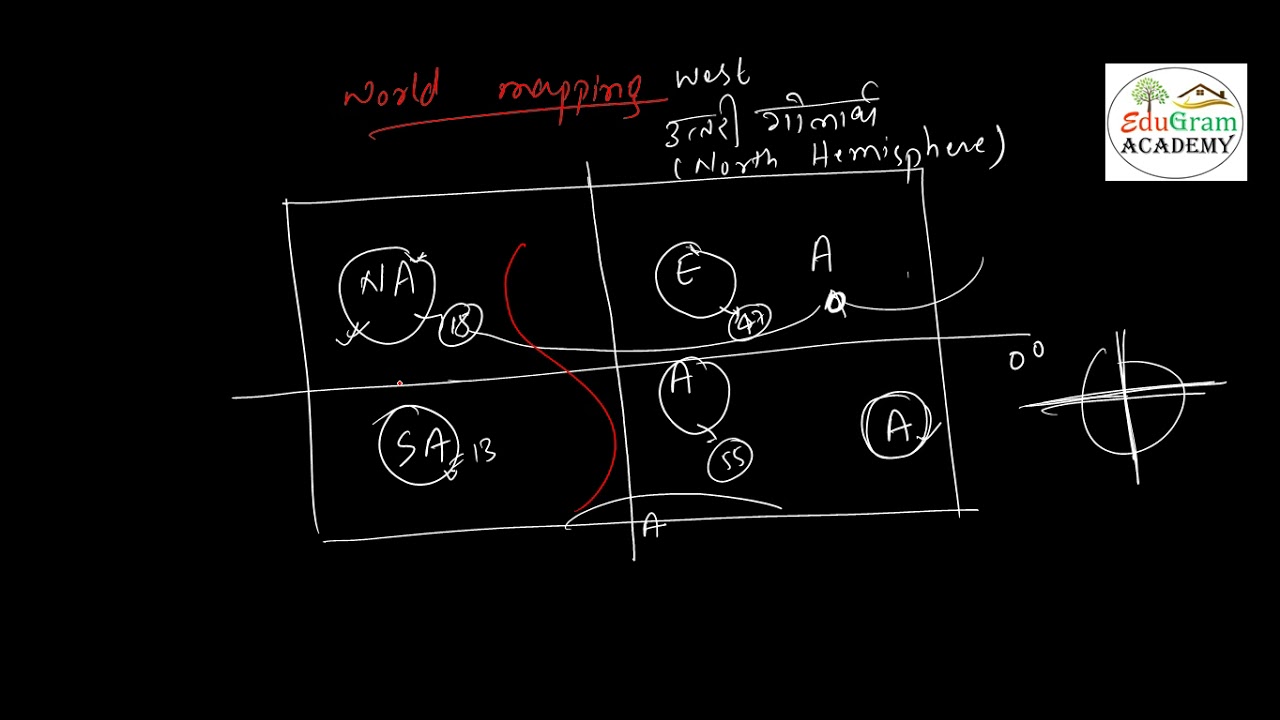 World mapping West
उत्तरी गोलार्ध
(North Hemisphere)
EduGram
ACADEMY
NA
18
E
47
A
0°
SA 13
A
55
A
A